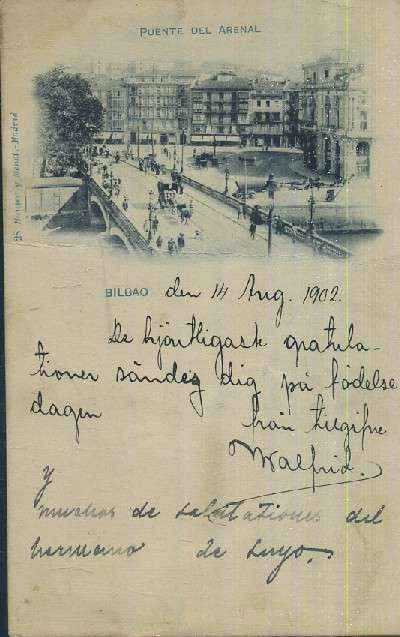 PUENTE DEL ARENAL
28 Hauser y Menet.-Madrid
BILBAO den 14 Aug. 1902.
De hjärtligask gratula-
tioner sändes dig på födelse
dagen från tillgifne
Walfrid.
y
muchos de salutationes del
hermano de suyo.